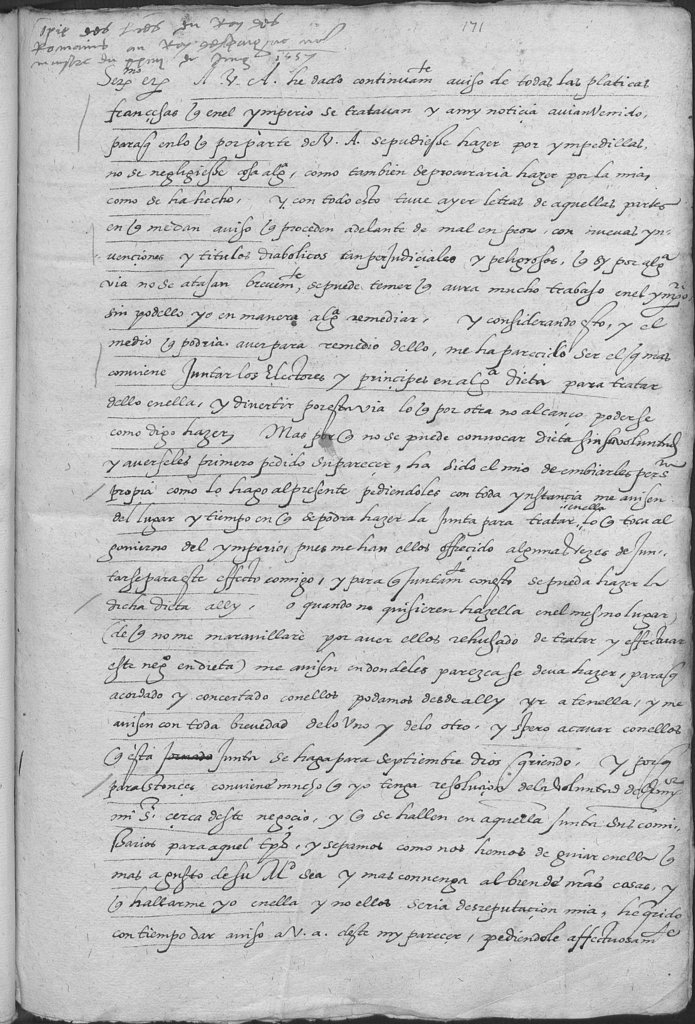 171
Copie des lres du Roy des
Romains au Roy despaigne nre
maistre du de Juing 1557
Sermo sr A V. A. he dado continuamte aviso de todas las platicas
françesas q enel ymperio se tratavan y amy noticia avian venido,
paraq enlo q por parte de V. A. se pudiesse hazer por ympedillas,
no se negligiesse cosa alga, como tambien se procuraria hazer por la mia,
como se ha hecho, y con todo esto tuve ayer letras de aquellas partes
en q me dan aviso q proceden adelante de mal en peor, con nuevas yn-
venciones y titulos diabolicos tan perjudiciales y peligrosos, q sy por alga
via no se atajan brevemte, se puede temer q avra mucho trabajo enel ympro,
sin podello yo en manera alga remediar, y considerando esto, y el
medio q podria aver para remedio dello, me ha parecido ser el q mas
conviene Juntar los Electores y principes en alga dieta para tratar
dello enella, y divertir por esta via lo q por otra no alcanço poderse
como digo hazer, Mas por q no se puede convocar dieta sin su voluntad
y averseles primero pedido su parecer, ha sido el mio de embiarles persa
propia como lo hago al presente pediendoles con toda ynstançia me avisen
del lugar y tiempo en q se podra hazer la Junta para tratar enella lo q toca al
govierno del ymperio, pues me han ellos offrecido algunas vezes de Jun-
tarse para este effecto comigo, y para q Juntamte con esto se pueda hazer la
dicha dieta ally, o quando no quisieren hazella enel mesmo lugar
(de q no me maravillare por aver ellos rehusado de tratar y effectuar
este nego en dieta) me avisen en donde les parezca se deva hazer, paraq
acordado y concertado conellos podamos desde ally yr a tenella, y me
avisen con toda brevedad delo Uno y delo otro, y spero acavar conellos
q esta Junta se haga para septiembre dios queriendo, Y porq
para stonces conviene mucho q yo tenga resolucion dela Voluntad del Empor
mi sr cerca deste negocio, y q se hallen en aquella Junta sus comi-
ssarios para aquel tpo, y sepamos como nos hemos de guiar enella q
mas a gusto de su Md sea y mas convenga al bien de nras cosas, y
q hallarme yo enella y no ellos seria desreputacion mia, he qrido
con tiempo dar aviso a V. a. deste my parecer, pediendole affectuosamte